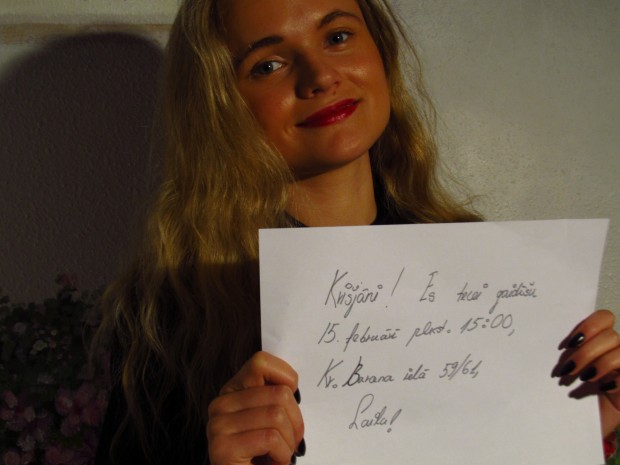 Krišjāni! Es tevi gaidīšu
15. februārī plkst. 15:00,
Kr. Barona ielā 59/61,
Laila!